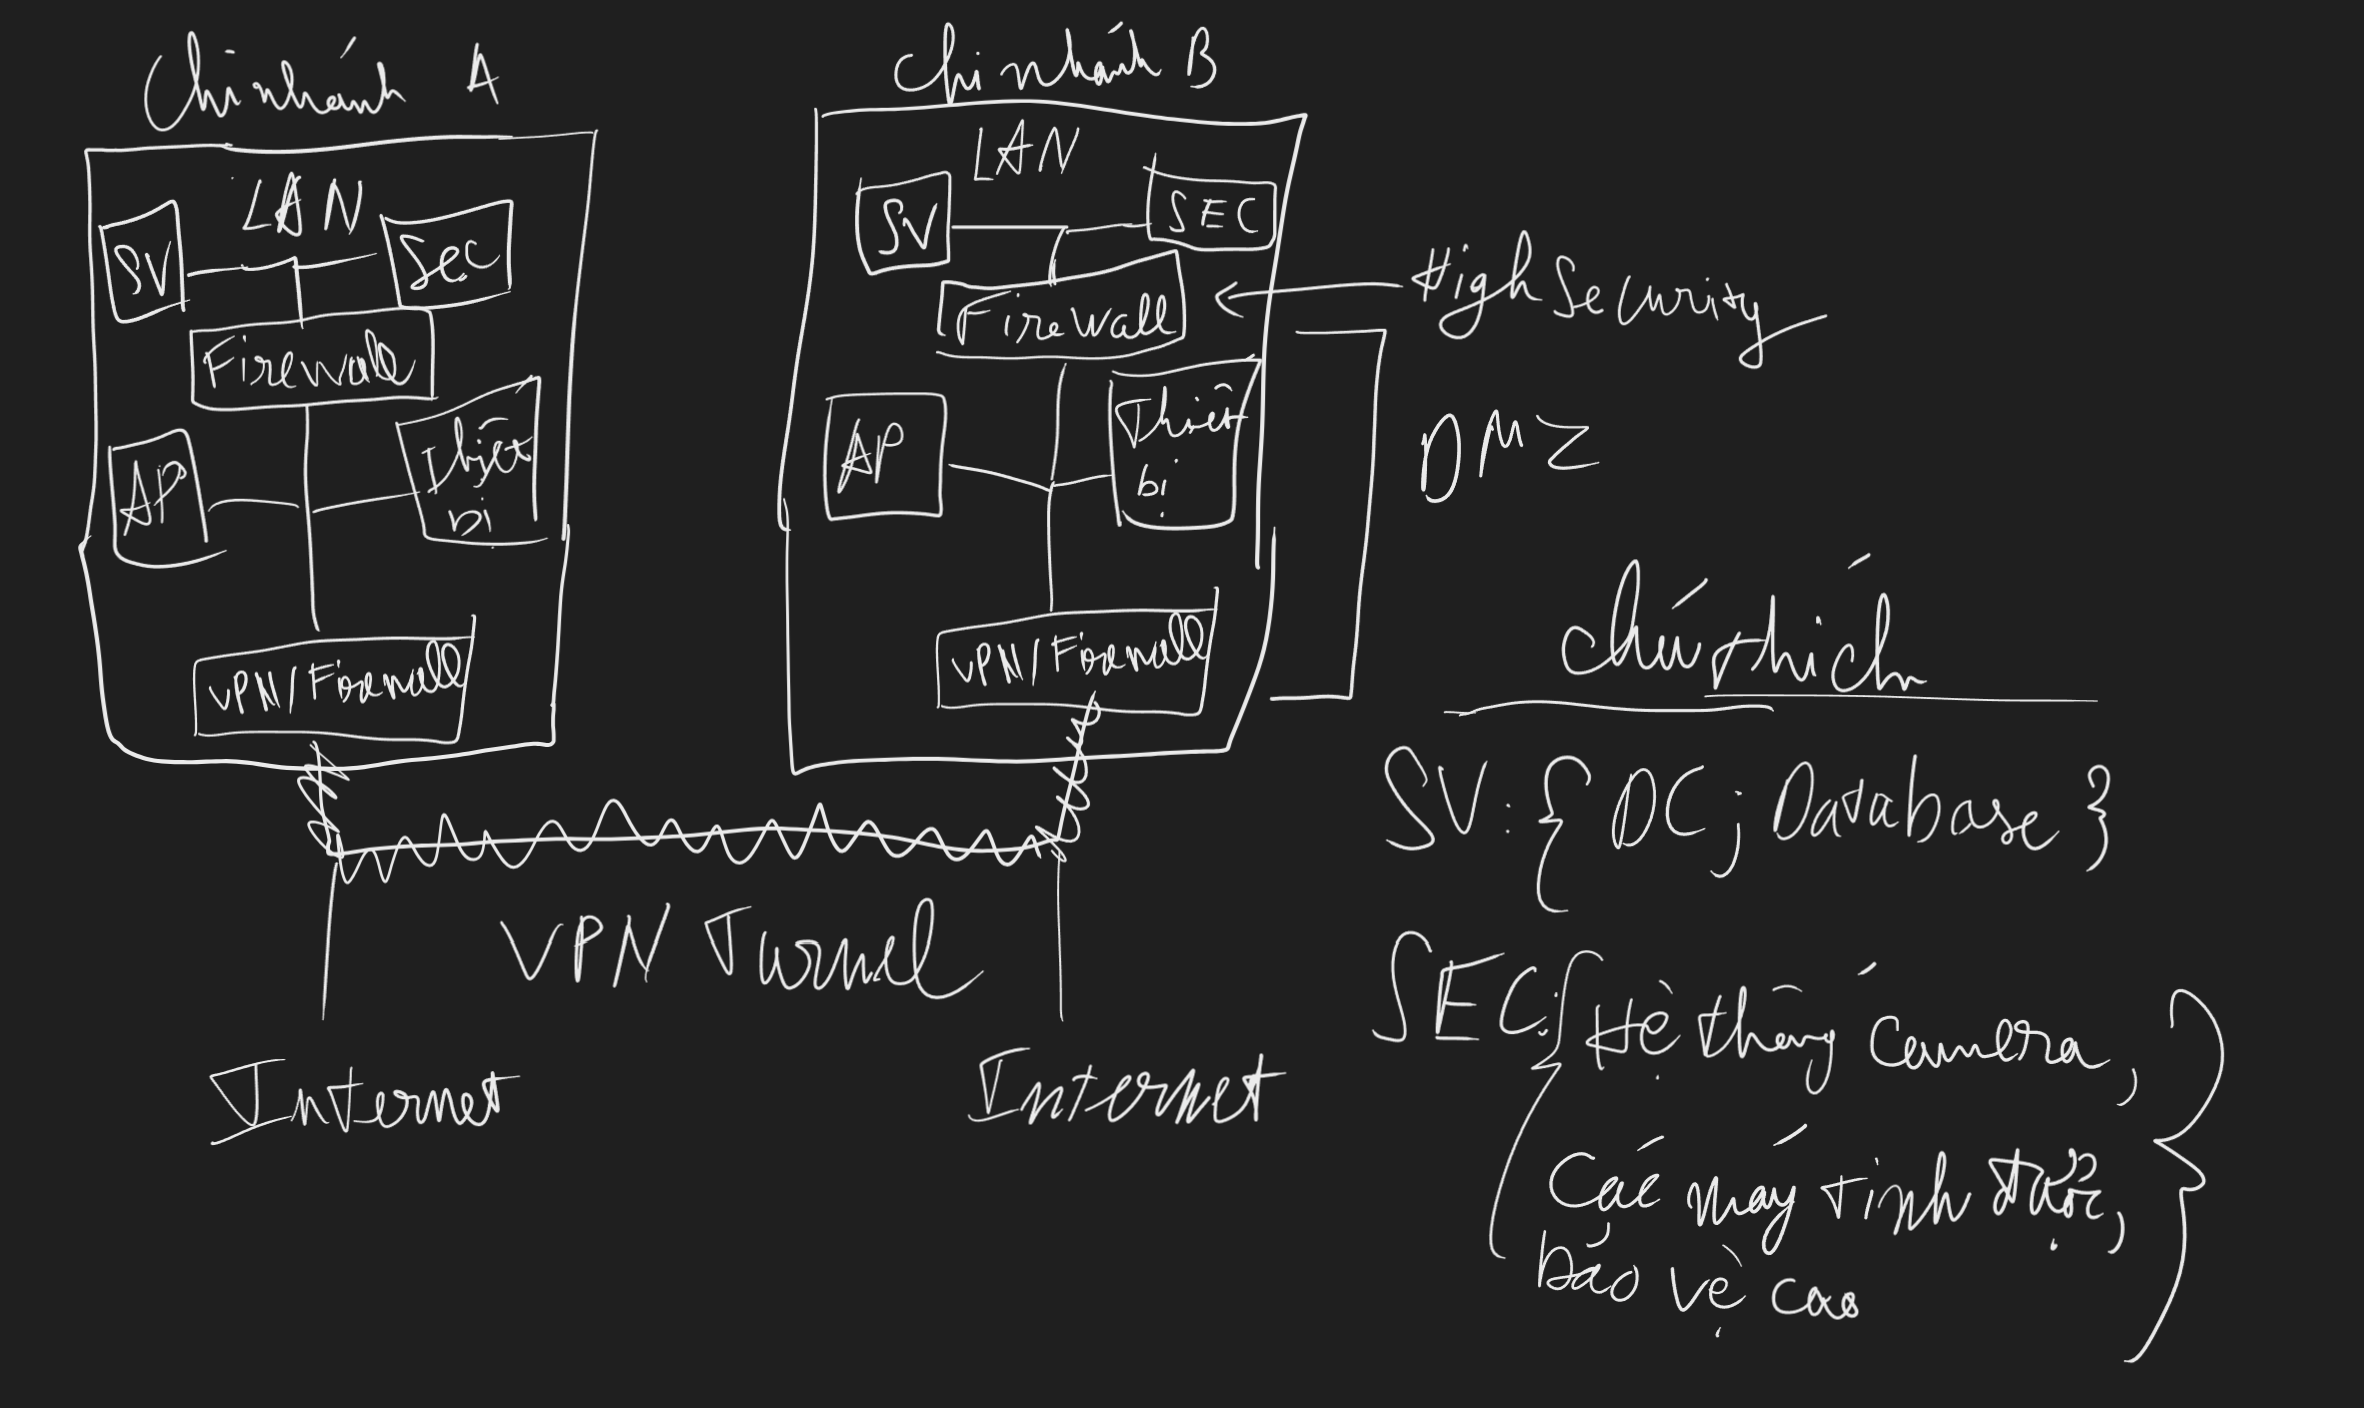 Chi nhánh A
LAN
SV
Sec
Firewall
AP
Thiết
bị
VPN/Firewall
Chi nhánh B
LAN
SV
SEC
Firewall
AP
Thiết
bị
VPN/Firewall
High Security
DMZ
VPN Tunnel
Internet
Internet
Chú thích
SV: { DC; Database }
SEC: { Hệ thống Camera,
Các máy tính được,
bảo vệ cao }